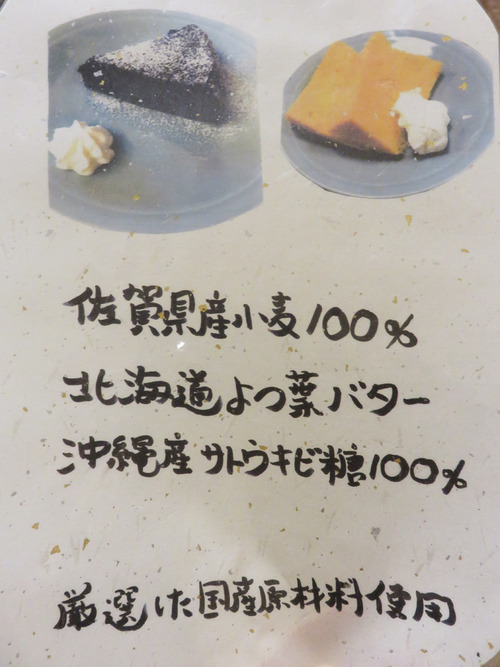 佐賀県産小麦100%
北海道よつ葉バター
沖縄産サトウキビ糖100%
厳選した国産原材料使用